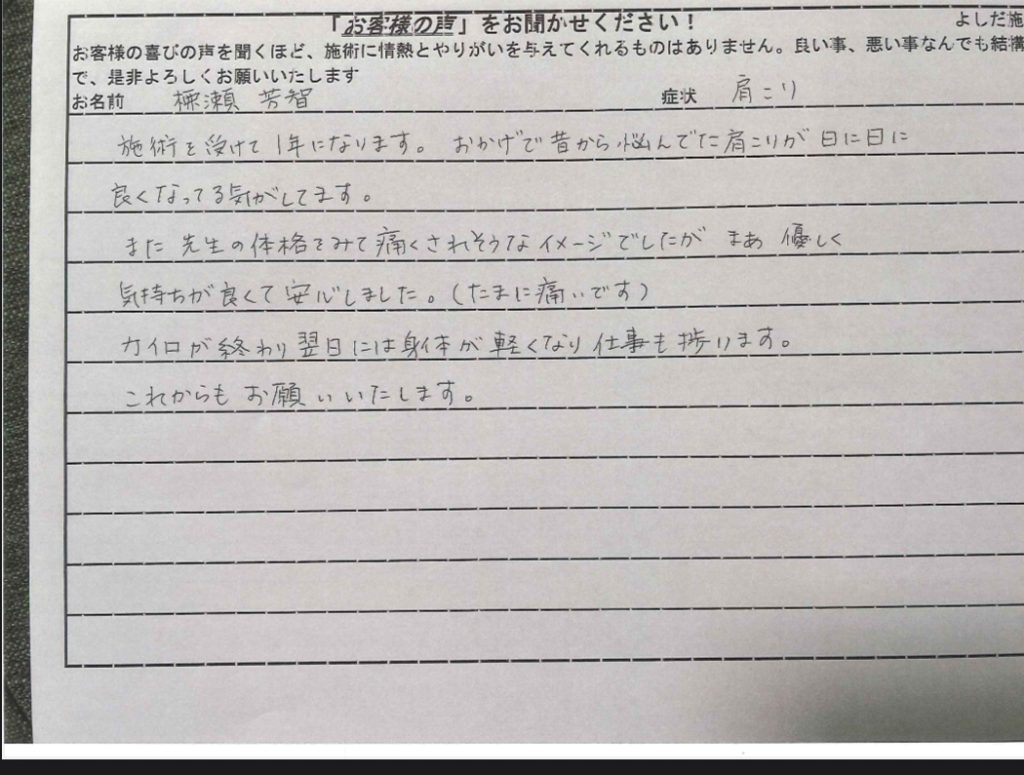 「お客様の声」をお聞かせください！
よしだ施
お客様の喜びの声を聞くほど、施術に情熱とやりがいを与えてくれるものはありません。良い事、悪い事なんでも結構
で、是非よろしくお願いいたします
お名前 瀬 芳智 症状 肩こり
施術を受けて1年になります。おかげで昔から悩んでた肩こりが日に日に
良くなってる気がしてます。
また先生の体格をみて痛くされそうなイメージでしたが まあ優しく
気持ちが良くて安心しました。（たまに痛いです）
カイロが終わり翌日には身体が軽くなり仕事も捗います。
これからもお願いいたします。